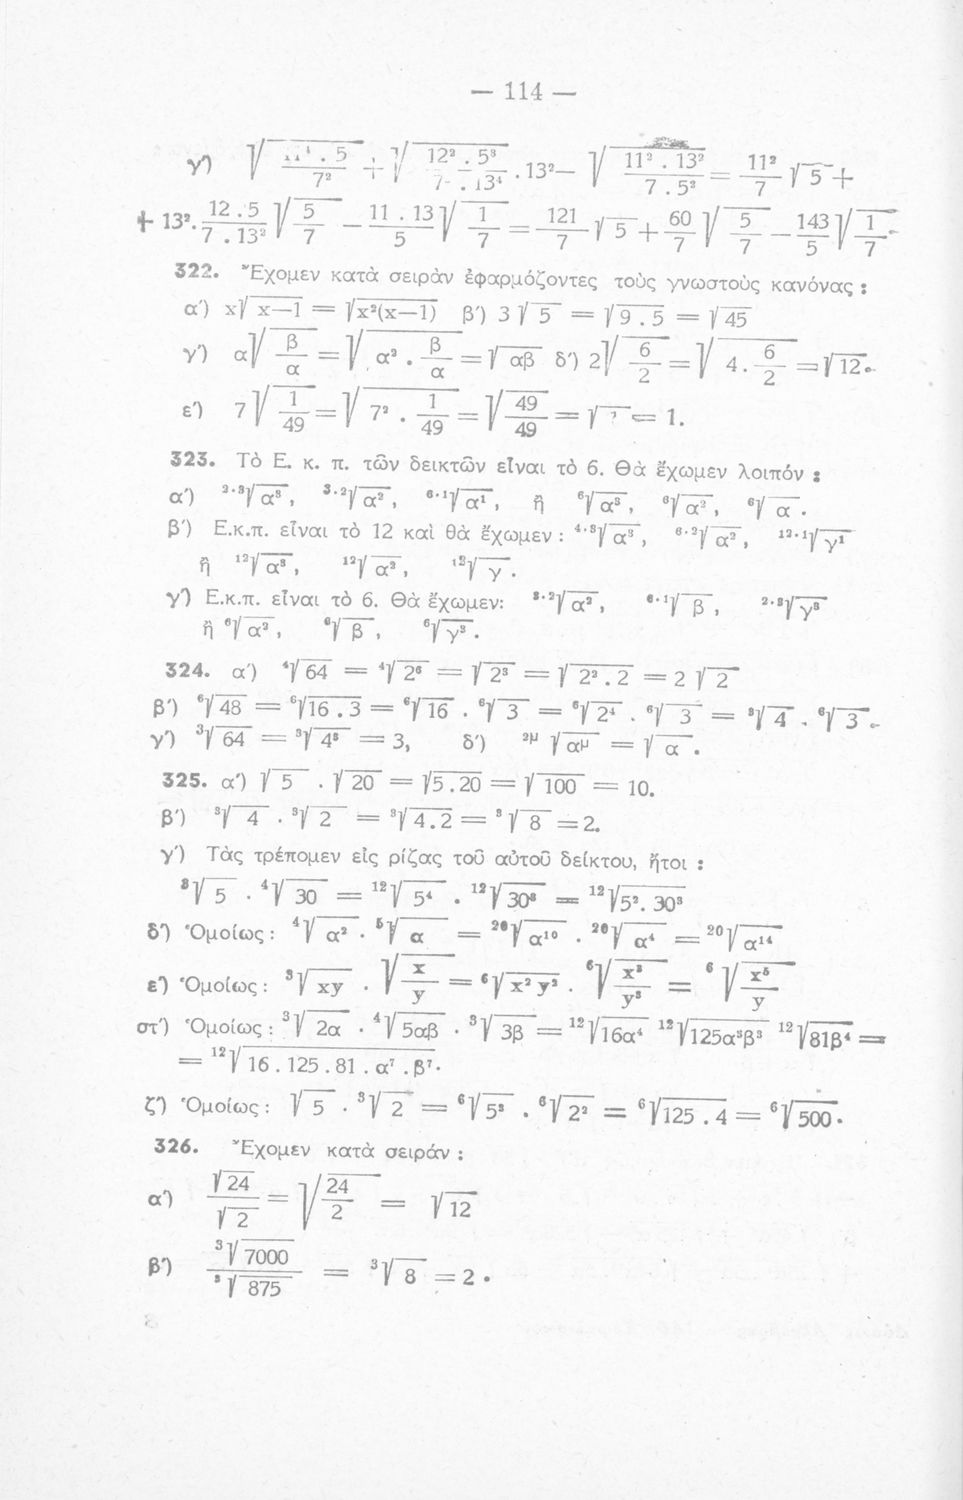 — 114 —
γ') √(11⁴ . 5 / 7²) + √(12² . 5³ / 7 . 13⁴) . 13² — √(11² . 13² / 7 . 5²) = 11²/7 √5 +
+ 13² . 12 . 5 / 7 . 13² √(5/7) — 11 . 13 / 5 √(1/7) = 121/7 √5 + 60/7 √(5/7) — 143/5 √(1/7).
322. Ἔχομεν κατὰ σειρὰν ἐφαρμόζοντες τοὺς γνωστοὺς κανόνας :
α') x√(x—1) = √(x²(x—1)) β') 3√5 = √(9 . 5) = √45
γ') α√(β/α) = √(α² . β/α) = √(αβ) δ') 2√(6/2) = √(4 . 6/2) = √12.
ε') 7√(1/49) = √(7² . 1/49) = √(49/49) = √1 = 1.
323. Τὸ Ε. κ. π. τῶν δεικτῶν εἶναι τὸ 6. Θὰ ἔχωμεν λοιπόν :
α') ²·³√α³, ³·²√α², ⁶·¹√α¹, ἢ ⁶√α³, ⁶√α², ⁶√α .
β') Ε.κ.π. εἶναι τὸ 12 καὶ θὰ ἔχωμεν : ⁴·³√α³, ⁶·²√α², ¹²·¹√γ¹
ἢ ¹²√α³, ¹²√α², ¹²√γ .
γ') Ε.κ.π. εἶναι τὸ 6. Θὰ ἔχωμεν: ³·²√α², ⁶·¹√β, ²·³√γ³
ἢ ⁶√α², ⁶√β, ⁶√γ³.
324. α') ⁴√64 = ⁴√2⁶ = √2³ = √(2² . 2) = 2√2
β') ⁶√48 = ⁶√(16 . 3) = ⁶√16 . ⁶√3 = ⁶√2⁴ . ⁶√3 = ³√4 . ⁶√3.
γ') ³√64 = ³√4³ = 3, δ') ²μ√αμ = √α .
325. α') √5 . √20 = √(5 . 20) = √100 = 10.
β') ³√4 . ³√2 = ³√(4 . 2) = ³√8 = 2.
γ') Τὰς τρέπομεν εἰς ρίζας τοῦ αὐτοῦ δείκτου, ἤτοι :
³√5 . ⁴√30 = ¹²√5⁴ . ¹²√30³ = ¹²√(5². 30³)
δ') Ὁμοίως : ⁴√α² . ⁵√α = ²⁰√α¹⁰ . ²⁰√α⁴ = ²⁰√α¹⁴
ε') Ὁμοίως : ³√(xy) . √(x/y) = ⁶√(x² y²) . ⁶√(x³/y³) = ⁶√(x⁵/y)
στ') Ὁμοίως : ³√(2α) . ⁴√(5αβ) . ³√(3β) = ¹²√(16α⁴) ¹²√(125α³β³) ¹²√(81β⁴) =
= ¹²√(16 . 125 . 81 . α⁷ . β⁷).
ζ') Ὁμοίως : √5 . ³√2 = ⁶√5³ . ⁶√2² = ⁶√(125 . 4) = ⁶√500.
326. Ἔχομεν κατὰ σειράν :
α') √24 / √2 = √(24/2) = √12
β') ³√7000 / ³√875 = ³√8 = 2 .